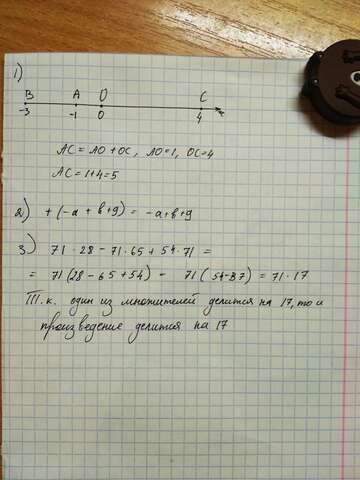 1)
B A O C
-3 -1 0 4 x
AC = AO + OC, AO=1, OC=4
AC = 1+4=5
2) + (-a + b + 9) = -a+b+9
3) 71 · 28 - 71 · 65 + 54 · 71 =
= 71 (28 - 65 + 54) = 71 (54-37) = 71 · 17
Т.к. один из множителей делится на 17, то и
произведение делится на 17